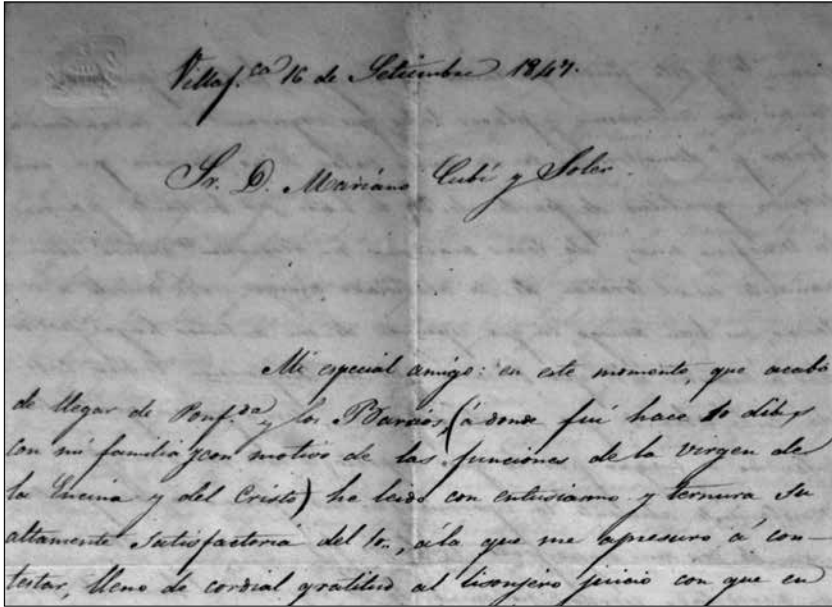 Villaf.ca 16 de Setiembre 1847.
Sr. D. Mariano Cubí y Soler.
Mi especial amigo: en este momento, que acabo
de llegar de Ponf.da y los Barrios, (á donde fuí hace 10 dias
con mi familia y con motivo de las funciones de la virgen de
la Encina y del Cristo) he leido con entusiasmo y ternura su
altamente satisfactoria del 1o., á la que me apresuro á con-
testar, lleno de cordial gratitud al lisonjero juicio con que en